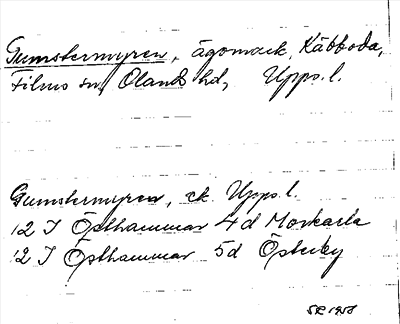 Gumstermyren, ägomark, Käbboda,
Films sn, Olands hd, Upps. l.
Gumstermyren, ek Upps. l.
12 I Östhammar 4 d Morkarla
12 I Östhammar 5d Österby
SR 1958